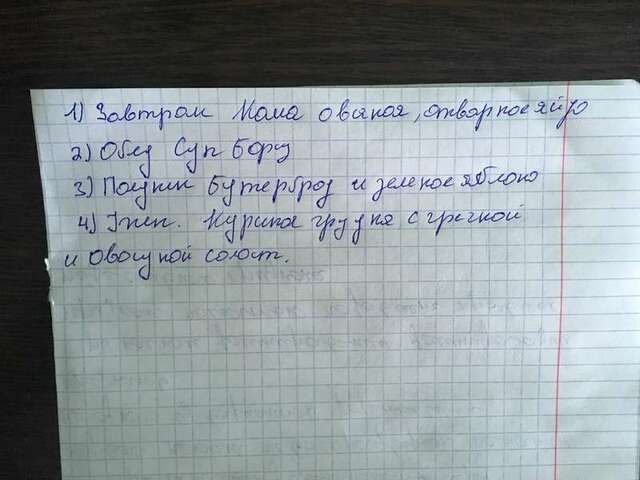 1) Завтрак Каша овяная, отварное яйцо
2) Обед Суп Борщ
3) Полдник Бутерброд и зеленое яблоко
4) Ужин. Куриная грудка с гречкой
и овощной салат.